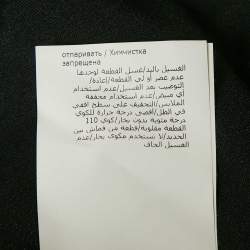 отпаривать / Химчистка
запрещена
الغسيل باليد/غسيل القطعة لوحدها
عدم عصر أو لي القطعة/إعادة/
التوضيب بعد الغسيل/عدم استخدام
أي مبيض/عدم استخدام مجففة
الملابس/التجفيف على سطح افقي
في الظل/أقصى درجة حرارة للكوي
110 درجة مئوية بدون بخار/كوي
القطعة مقلوبة/قطعة من قماش بين
الحديد/لا تستخدم مكوى بخار/عدم
الغسيل الجاف